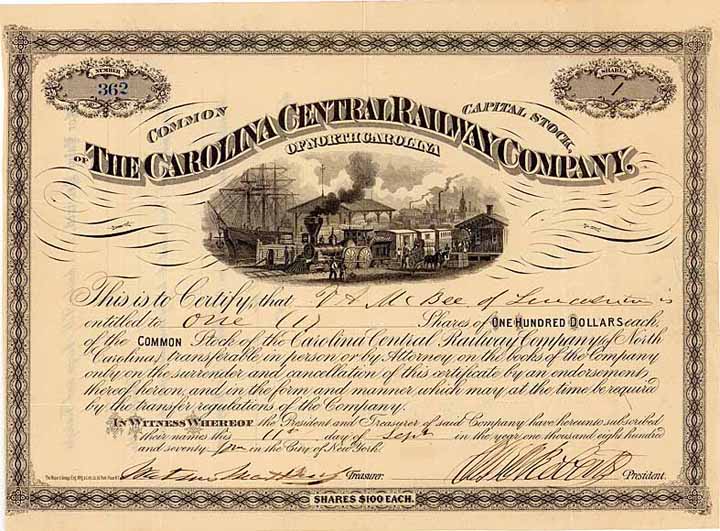 NUMBER
362
SHARES
1
COMMON CAPITAL STOCK,
OF THE CAROLINA CENTRAL RAILWAY COMPANY,
OF NORTH CAROLINA
This is to Certify, that V A McBee of is
entitled to one (1) Shares of ONE HUNDRED DOLLARS each,
of the COMMON Stock of the Carolina Central Railway Company (of North
Carolina,) transferable in person or by Attorney on the books of the Company
only on the surrender and cancellation of this certificate by an endorsement
thereof hereon, and in the form and manner which may at the time be required
by the transfer regulations of the Company.
IN WITNESS WHEREOF the President and Treasurer of said Company have hereunto subscribed
their names this 11th day of Sept in the year one thousand eight hundred
and seventy four in the City of New York.
Treasurer. President.
SHARES $100 EACH.